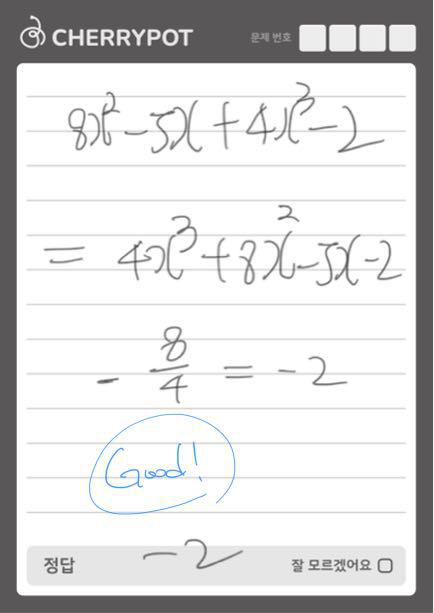 CHERRYPOT 문제 번호
8x² - 5x + 4x³ - 2
= 4x³ + 8x² - 5x - 2
- 8/4 = -2
Good!
정답 -2 잘 모르겠어요